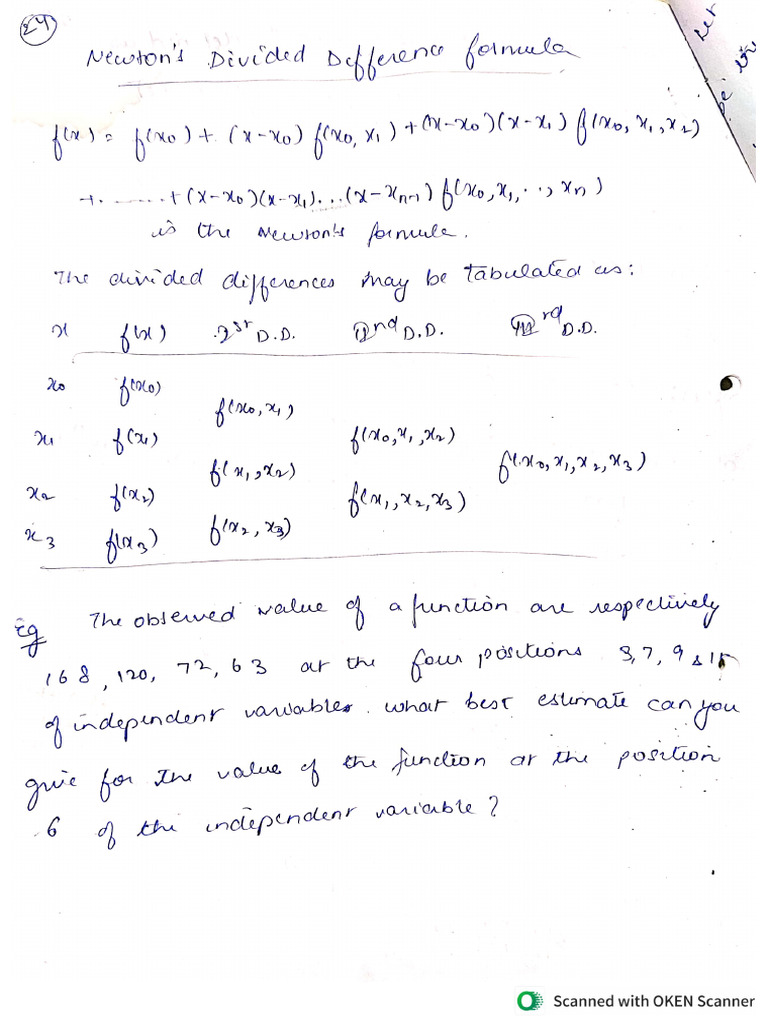 24
Newton's Divided Difference formula
f(x) = f(x0) + (x-x0) f(x0, x1) + (x-x0)(x-x1) f(x0, x1, x2)
+ ....... + (x-x0)(x-x1)...(x-xn-1) f(x0, x1, .., xn)
is the Newton's formula.
The divided differences may be tabulated as:
x f(x) Ist D.D. IInd D.D. IIIrd D.D.
x0 f(x0)
f(x0, x1)
x1 f(x1) f(x0, x1, x2)
f(x1, x2) f(x0, x1, x2, x3)
x2 f(x2) f(x1, x2, x3)
f(x2, x3)
x3 f(x3)
Eg The observed value of a function are respectively
168, 120, 72, 63 at the four positions 3, 7, 9 &
of independent variables. what best estimate can you
give for the value of the function at the position
6 of the independent variable?
Let
be
Scanned with OKEN Scanner